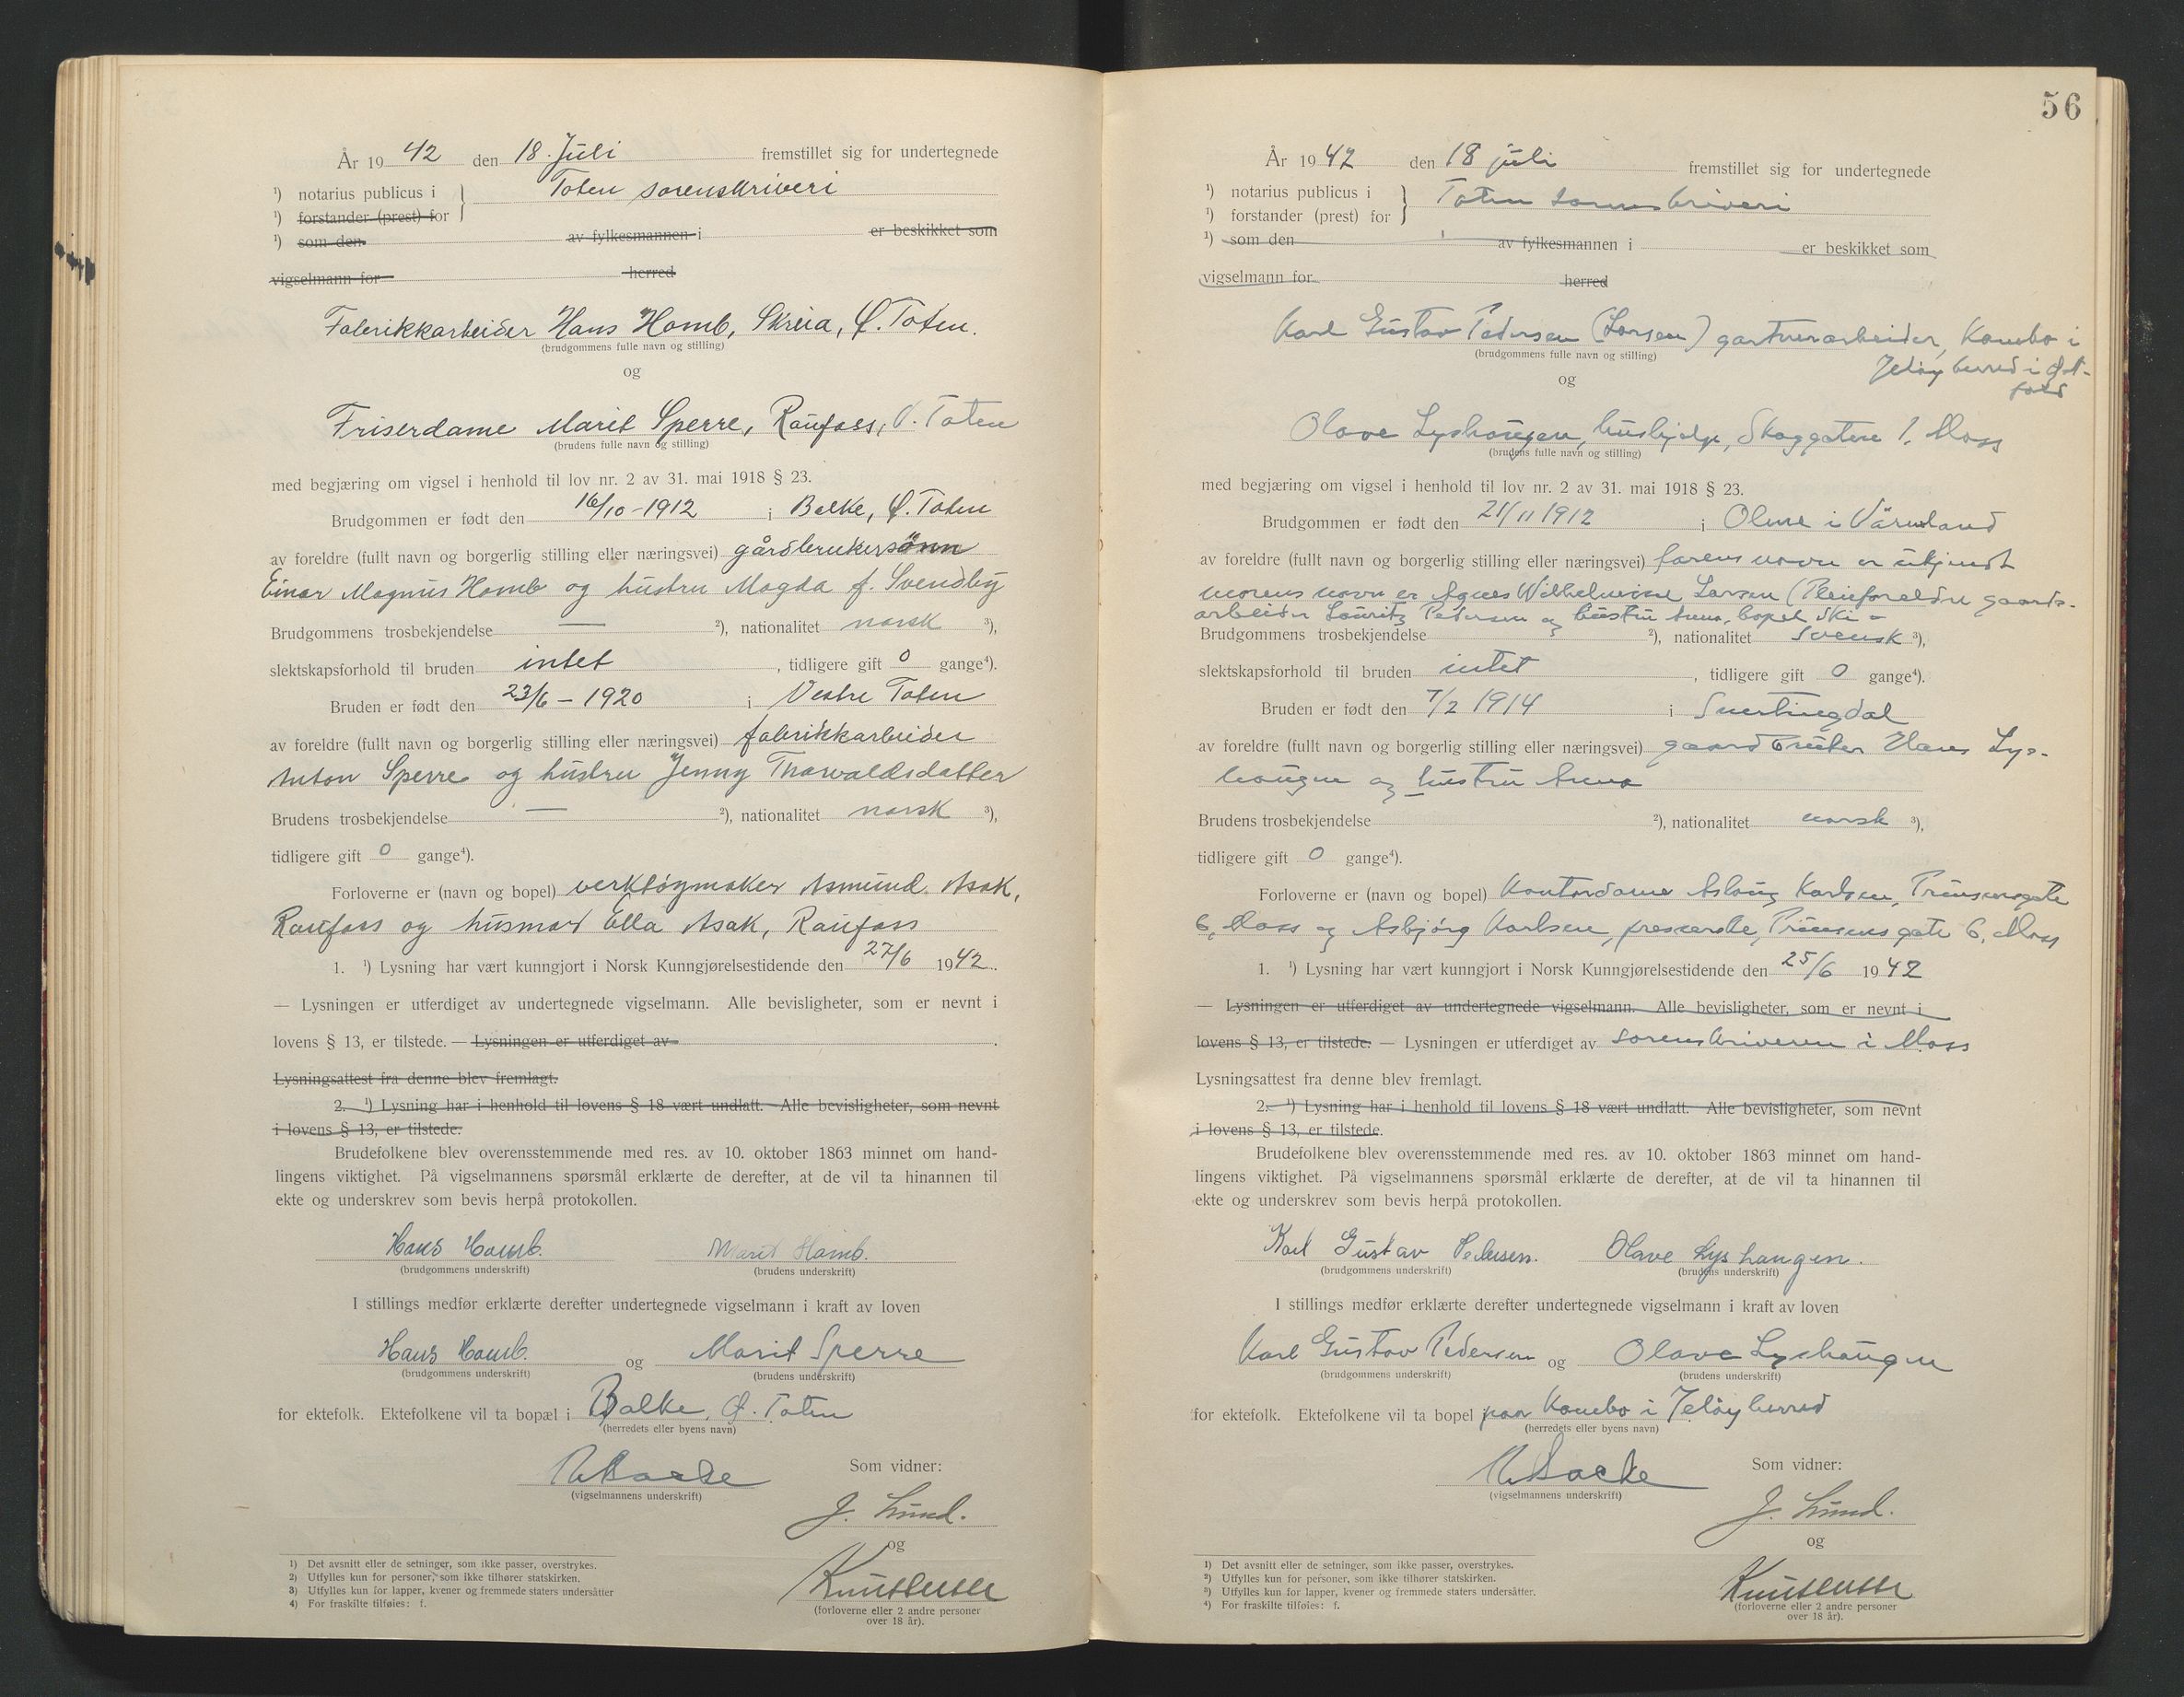 År 1942 den 18. Juli fremstillet sig for undertegnede
¹) notarius publicus i } Toten sorenskriveri
¹) forstander (prest) for
¹) som den av fylkesmannen i er beskikket som
vigselmann for herred
Fabrikkarbeider Hans Homb, Skreia, Ø. Toten.
(brudgommens fulle navn og stilling)
og
Friserdame Marit Sperre, Raufoss, V. Toten
(brudens fulle navn og stilling)
med begjæring om vigsel i henhold til lov nr. 2 av 31. mai 1918 § 23.
Brudgommen er født den 16/10-1912 i Balke, Ø. Toten
av foreldre (fullt navn og borgerlig stilling eller næringsvei) gårdbruker
Einar Magnus Homb og hustru Magda f. Svendby
Brudgommens trosbekjendelse — ²), nationalitet norsk ³),
slektskapsforhold til bruden intet, tidligere gift 0 gange⁴).
Bruden er født den 23/6 – 1920 i Vestre Toten
av foreldre (fullt navn og borgerlig stilling eller næringsvei) fabrikkarbeider
Anton Sperre og hustru Jenny Thorvaldsdatter
Brudens trosbekjendelse — ²), nationalitet norsk ³),
tidligere gift 0 gange⁴).
Forloverne er (navn og bopel) verktøymaker Asmund Asak,
Raufoss og husmor Ella Asak, Raufoss
1. ¹) Lysning har vært kunngjort i Norsk Kunngjørelsestidende den 27/6 1942.
— Lysningen er utferdiget av undertegnede vigselmann. Alle bevisligheter, som er nevnt i
lovens § 13, er tilstede. — Lysningen er utferdiget av
Lysningsattest fra denne blev fremlagt.
2. ¹) Lysning har i henhold til lovens § 18 vært undlatt. Alle bevisligheter, som nevnt
i lovens § 13, er tilstede.
Brudefolkene blev overensstemmende med res. av 10. oktober 1863 minnet om hand-
lingens viktighet. På vigselmannens spørsmål erklærte de derefter, at de vil ta hinannen til
ekte og underskrev som bevis herpå protokollen.
Hans Homb. Marit Homb.
(brudgommens underskrift) (brudens underskrift)
I stillings medfør erklærte derefter undertegnede vigselmann i kraft av loven
Hans Homb. og Marit Sperre
(brudgommens underskrift) (brudens underskrift)
for ektefolk. Ektefolkene vil ta bopæl i Balke, Ø. Toten
(herredets eller byens navn)
Som vidner:
(vigselmannens underskrift)
J. Lund.
og
Knut
(forloverne eller 2 andre personer
over 18 år).
¹) Det avsnitt eller de setninger, som ikke passer, overstrykes.
²) Utfylles kun for personer, som ikke tilhører statskirken.
³) Utfylles kun for lapper, kvener og fremmede staters undersåtter
⁴) For fraskilte tilføies: f.
56
År 1942 den 18 juli fremstillet sig for undertegnede
¹) notarius publicus i } Toten sorenskriveri
¹) forstander (prest) for
¹) som den av fylkesmannen i er beskikket som
vigselmann for herred
Karl Gustav Pedersen (Larsen) gartnerarbeider, Kambo i
Jeløy herred i Øst-
fold
(brudgommens fulle navn og stilling)
og
Olave Lyshaugen, hushjelp, Skoggatene 1, Moss
(brudens fulle navn og stilling)
med begjæring om vigsel i henhold til lov nr. 2 av 31. mai 1918 § 23.
Brudgommen er født den 21/11 1912 i Olme i Värmland
av foreldre (fullt navn og borgerlig stilling eller næringsvei) farens navn er ukjendt
morens navn er Agnes Wilhelmine Larsen (Pleieforeldre gaards-
arbeider Lauritz Pedersen og hustru Anna, bopel Ski -
Brudgommens trosbekjendelse ²), nationalitet svensk ³),
slektskapsforhold til bruden intet, tidligere gift 0 gange⁴).
Bruden er født den 7/2 1914 i Snertingdal
av foreldre (fullt navn og borgerlig stilling eller næringsvei) gaardbruker Hans Lys-
haugen og hustru Anna
Brudens trosbekjendelse ²), nationalitet norsk ³),
tidligere gift 0 gange⁴).
Forloverne er (navn og bopel) Kontordame Aslaug Karlsen, Prinsensgate
6, Moss og Asbjørg Karlsen, presserske, Prinsens gate 6, Moss
1. ¹) Lysning har vært kunngjort i Norsk Kunngjørelsestidende den 25/6 1942
— Lysningen er utferdiget av undertegnede vigselmann. Alle bevisligheter, som er nevnt i
lovens § 13, er tilstede. — Lysningen er utferdiget av sorenskriveren i Moss
Lysningsattest fra denne blev fremlagt.
2. ¹) Lysning har i henhold til lovens § 18 vært undlatt. Alle bevisligheter, som nevnt
i lovens § 13, er tilstede.
Brudefolkene blev overensstemmende med res. av 10. oktober 1863 minnet om hand-
lingens viktighet. På vigselmannens spørsmål erklærte de derefter, at de vil ta hinannen til
ekte og underskrev som bevis herpå protokollen.
Karl Gustav Pedersen. Olave Lyshaugen.
(brudgommens underskrift) (brudens underskrift)
I stillings medfør erklærte derefter undertegnede vigselmann i kraft av loven
Karl Gustav Pedersen og Olave Lyshaugen
(brudgommens underskrift) (brudens underskrift)
for ektefolk. Ektefolkene vil ta bopel paa Kambo i Jeløy herred
(herredets eller byens navn)
Som vidner:
(vigselmannens underskrift)
J. Lund.
og
Knut
(forloverne eller 2 andre personer
over 18 år).
¹) Det avsnitt eller de setninger, som ikke passer, overstrykes.
²) Utfylles kun for personer, som ikke tilhører statskirken.
³) Utfylles kun for lapper, kvener og fremmede staters undersåtter.
⁴) For fraskilte tilføies: f.